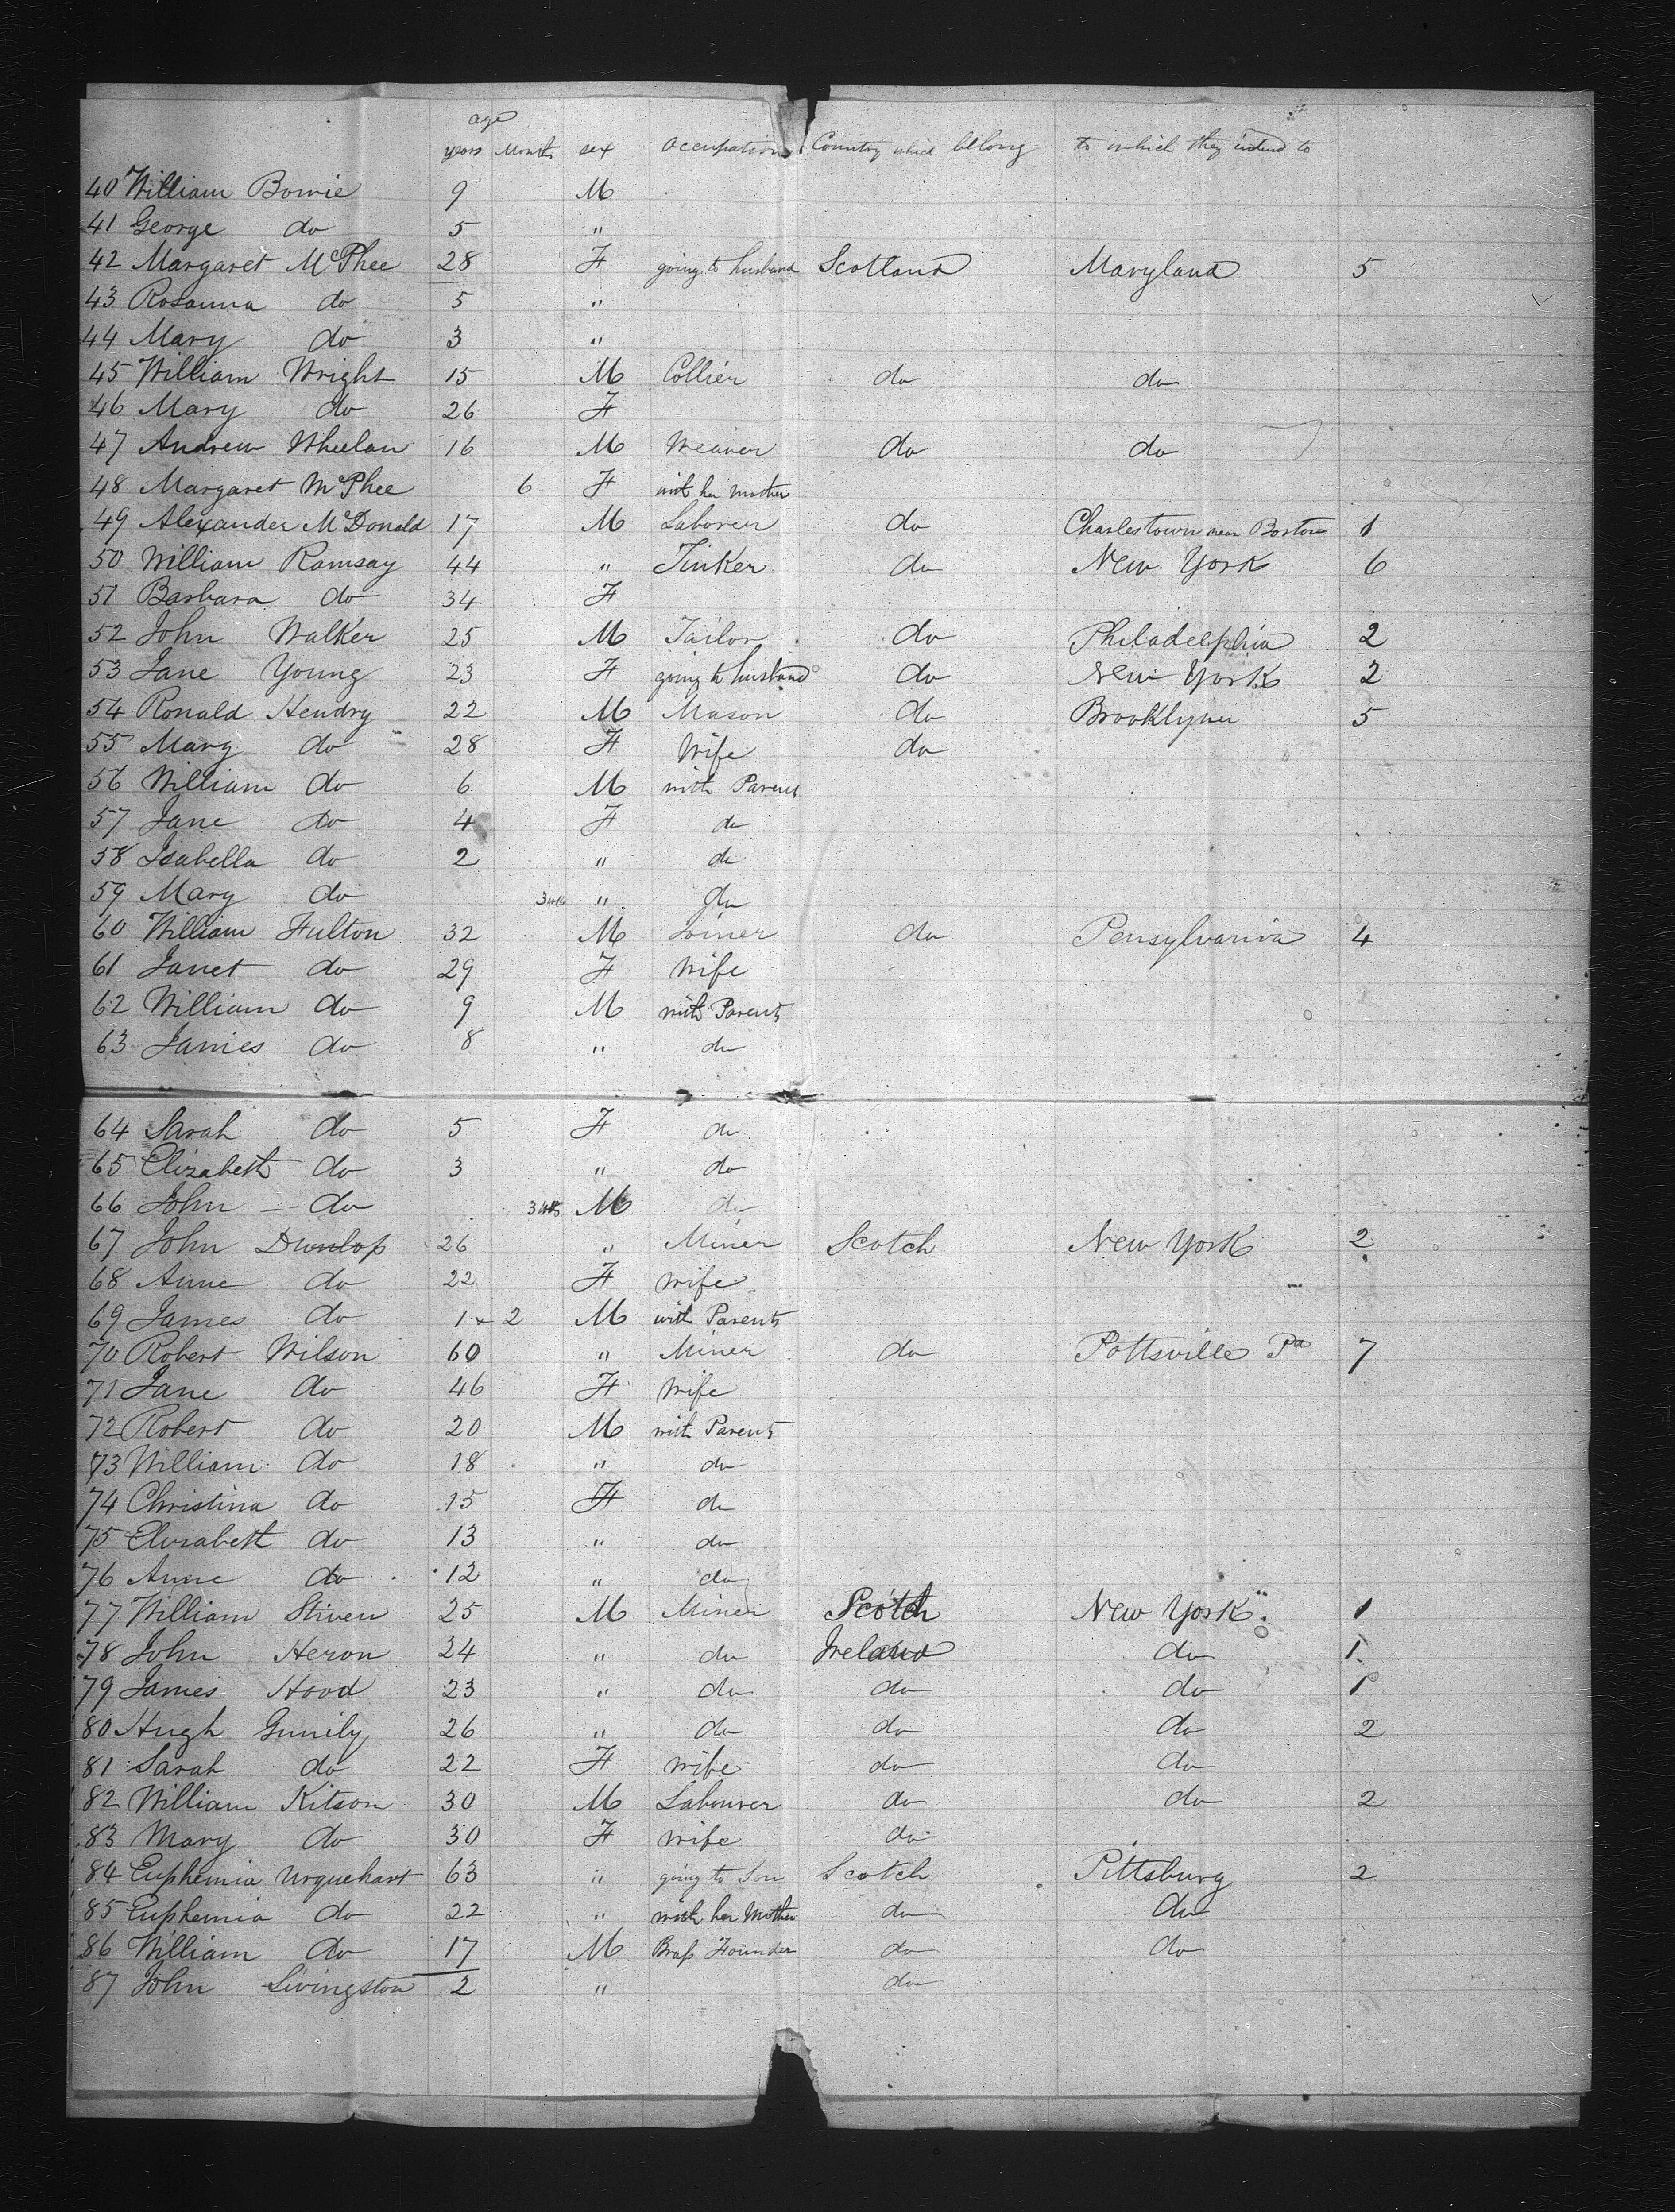 age
years Months sex Occupation Country which belong to which they intend to
40 William Bowie 9 M
41 George do 5 "
42 Margaret McPhee 28 F going to husband Scotland Maryland 5
43 Rosanna do 5 "
44 Mary do 3 "
45 William Wright 15 M Collier do do
46 Mary do 26 F
47 Andrew Wheelan 16 M Weaver do do
48 Margaret McPhee 6 F with her mother
49 Alexander McDonald 17 M Laborer do Charlestown near Boston 1
50 William Ramsay 44 " Tinker do New York 6
51 Barbara do 34 F
52 John Walker 25 M Tailor do Philadelphia 2
53 Jane Young 23 F going to husband do New York 2
54 Ronald Hendry 22 M Mason do Brooklyner 5
55 Mary do 28 F Wife do
56 William do 6 M with Parents
57 Jane do 4 F do
58 Isabella do 2 " do
59 Mary do 3 wks " do
60 William Fulton 32 M Joiner do Pensylvania 4
61 Janet do 29 F Wife
62 William do 9 M with Parents
63 James do 8 " do
64 Sarah do 5 F do
65 Elizabeth do 3 " do
66 John do 3 wks M do
67 John Dunlop 26 " Miner Scotch New York 2
68 Anne do 22 F wife
69 James do 1 2 M with Parents
70 Robert Wilson 60 " Miner do Pottsville Pa 7
71 Jane do 46 F Wife
72 Robert do 20 M with Parents
73 William do 18 " do
74 Christina do 15 F do
75 Elizabeth do 13 " do
76 Anne do 12 " do
77 William Stiven 25 M Miner Scotch New York 1
78 John Heron 24 " do Ireland do 1
79 James Hood 23 " do do do 1
80 Hugh Gunily 26 " do do do 2
81 Sarah do 22 F wife do do
82 William Kitson 30 M Labourer do do 2
83 Mary do 30 F wife do
84 Euphemia Urquehart 63 " going to Son Scotch Pittsburg 2
85 Euphemia do 22 " with her Mother do do
86 William do 17 M Brass Founder do do
87 John Livingston 2 " do